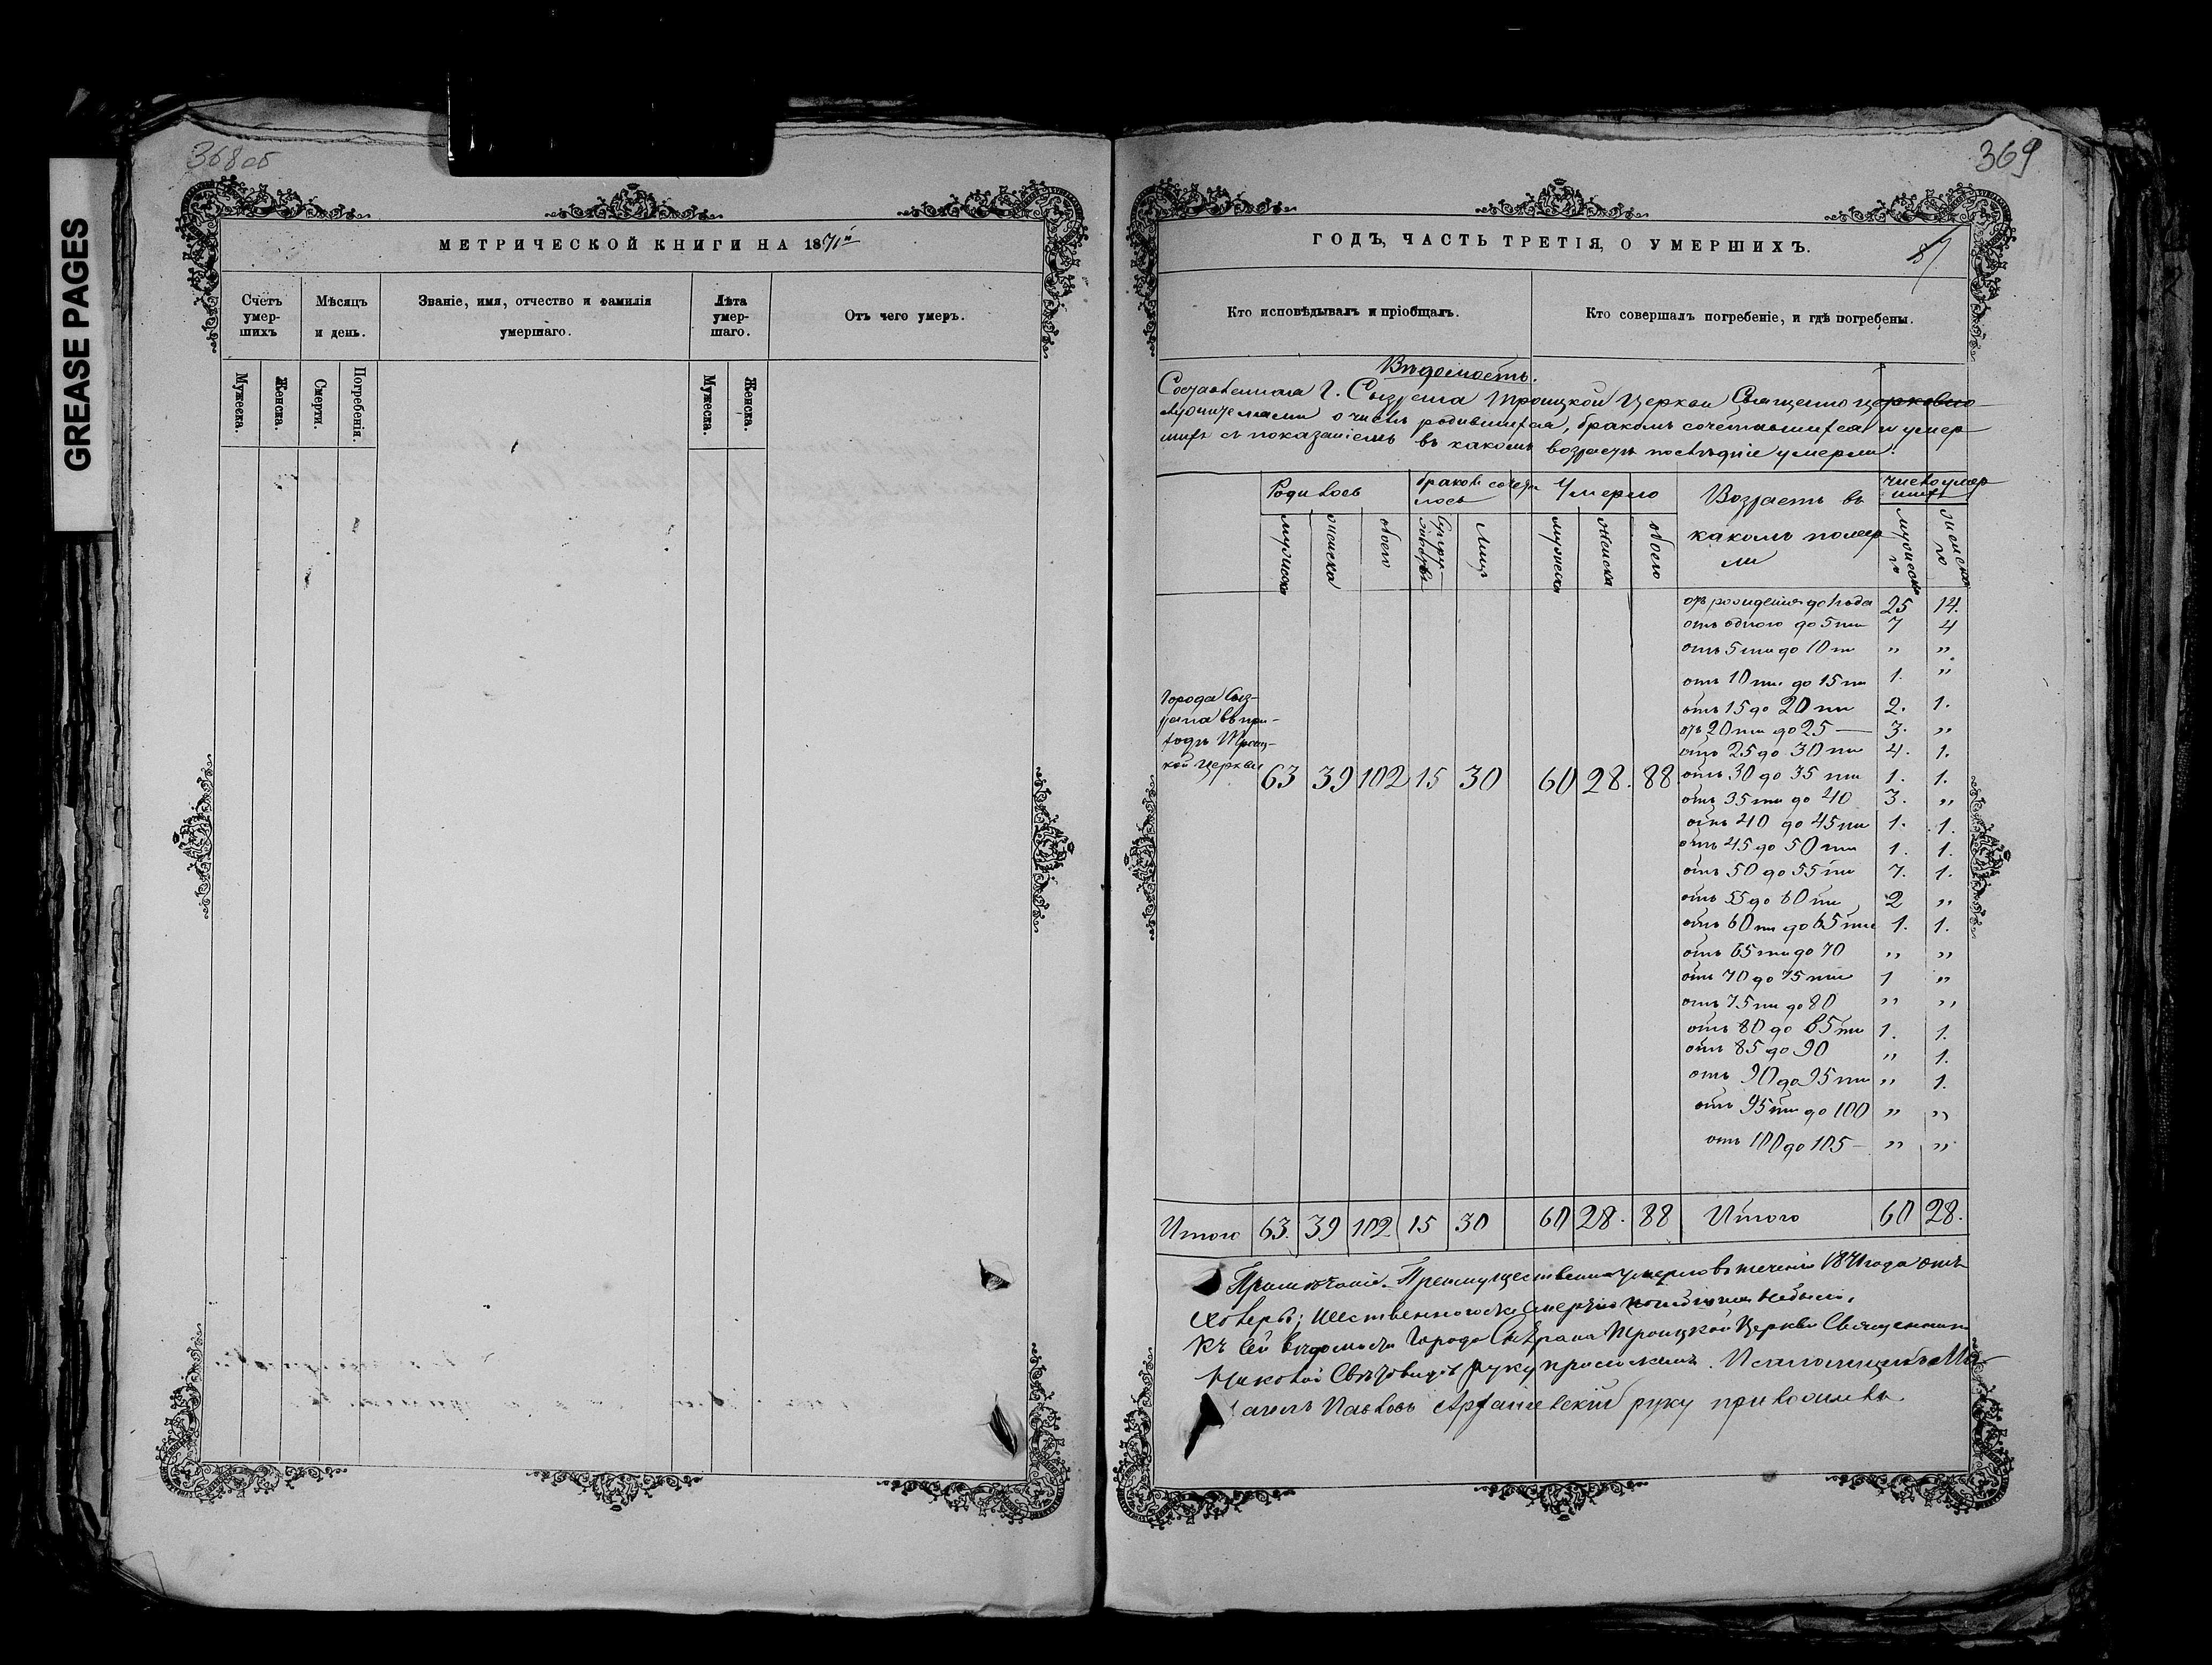 GREASE PAGES
368об
МЕТРИЧЕСКОЙ КНИГИ НА 1871й
Счетъ умер-шихъ
Мѣсяцъ и день.
Званіе, имя, отчество и фамилія умершаго.
Лѣта умер-шаго.
Отъ чего умеръ.
Мужеска.
Женска.
Смерти.
Погребенія.
Мужеска.
Женска.
369
ГОДЪ, ЧАСТЬ ТРЕТІЯ, О УМЕРШИХЪ.
87
Кто исповѣдывалъ и пріобщалъ.
Кто совершалъ погребеніе, и гдѣ погребены.
Вѣдомость.
Составленная Г. Сызрана Троицкой Церкви Священно церковно
служителями о числѣ родившихся, бракомъ сочетавшихся и умер
шихъ съ показаніемъ въ какомъ возрастѣ послѣдніе умерли.
Родилось
браковъ сочета лось
Умерло
Возрастъ въ какомъ помер ли
число умер шихъ
мужеска
женска
обоего
Супру-жествъ
Лицъ
мужеска
женска
обоего
мужеска го
женска го
отъ рожденія до 1 года 25 14.
отъ одного до 5ти 7 4
отъ 5ти до 10ти " "
отъ 10ти до 15ти 1. "
отъ 15 до 20ти 2. 1.
отъ 20ти до 25— 3. "
отъ 25 до 30ти 4. 1.
Города Сыз-
рана въ при-
ходѣ Троиц-
кой Церкви 63 39 102 15 30 60 28. 88
отъ 30 до 35ти 1. 1.
отъ 35ти до 40 3. "
отъ 40 до 45ти 1. 1.
отъ 45 до 50ти 1. 1.
отъ 50 до 55ти 7. 1.
отъ 55 до 60ти 2 "
отъ 60ти до 65ти 1. 1.
отъ 65ти до 70 " "
отъ 70 до 75ти 1 "
отъ 75ти до 80 " "
отъ 80 до 85ти 1. 1.
отъ 85 до 90 " 1.
отъ 90 до 95ти " 1.
отъ 95ти до 100 " "
отъ 100 до 105— " "
Итого 63. 39 102 15 30 60 28. 88 Итого 60 28.
Примѣчаніе. Преимущественно умерло въ теченіи 1871 года отъ
холеры;
Къ сей вѣдомости Города Сызрана Троицкой Церкви Священникъ
руку приложилъ.
Павловъ Архангельскій руку приложилъ